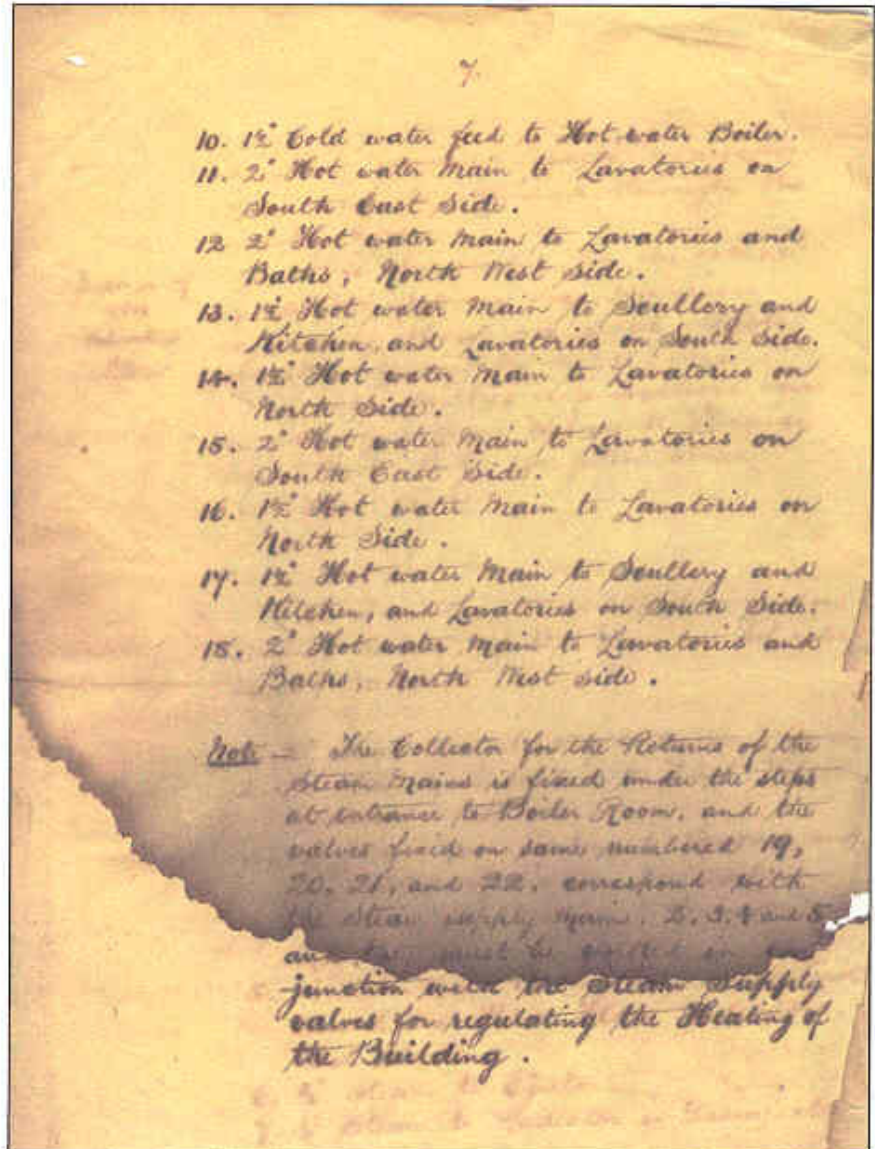 7.
10. 1½" Cold water feed to Hot water Boiler.
11. 2" Hot water Main to Lavatories on
South East Side.
12 2" Hot water Main to Lavatories and
Baths, North West Side.
13. 1½" Hot water Main to Scullery and
Kitchen, and Lavatories on South Side.
14. 1½" Hot water Main to Lavatories on
North Side.
15. 2" Hot water Main to Lavatories on
South East Side.
16. 1½" Hot water Main to Lavatories on
North Side.
17. 1½" Hot water Main to Scullery and
Kitchen, and Lavatories on South Side.
18. 2" Hot water Main to Lavatories and
Baths, North West side.
Note — The Collector for the Returns of the
Steam Mains is fixed under the steps
at entrance to Boiler Room, and the
valves fixed on same numbered 19,
20. 21, and 22. correspond with
the Steam supply Main. 2. 3. 4 and 5
and must be worked in
junction with the Steam Supply
valves for regulating the Heating of
the Building.
Steam to
Steam to Radiator in